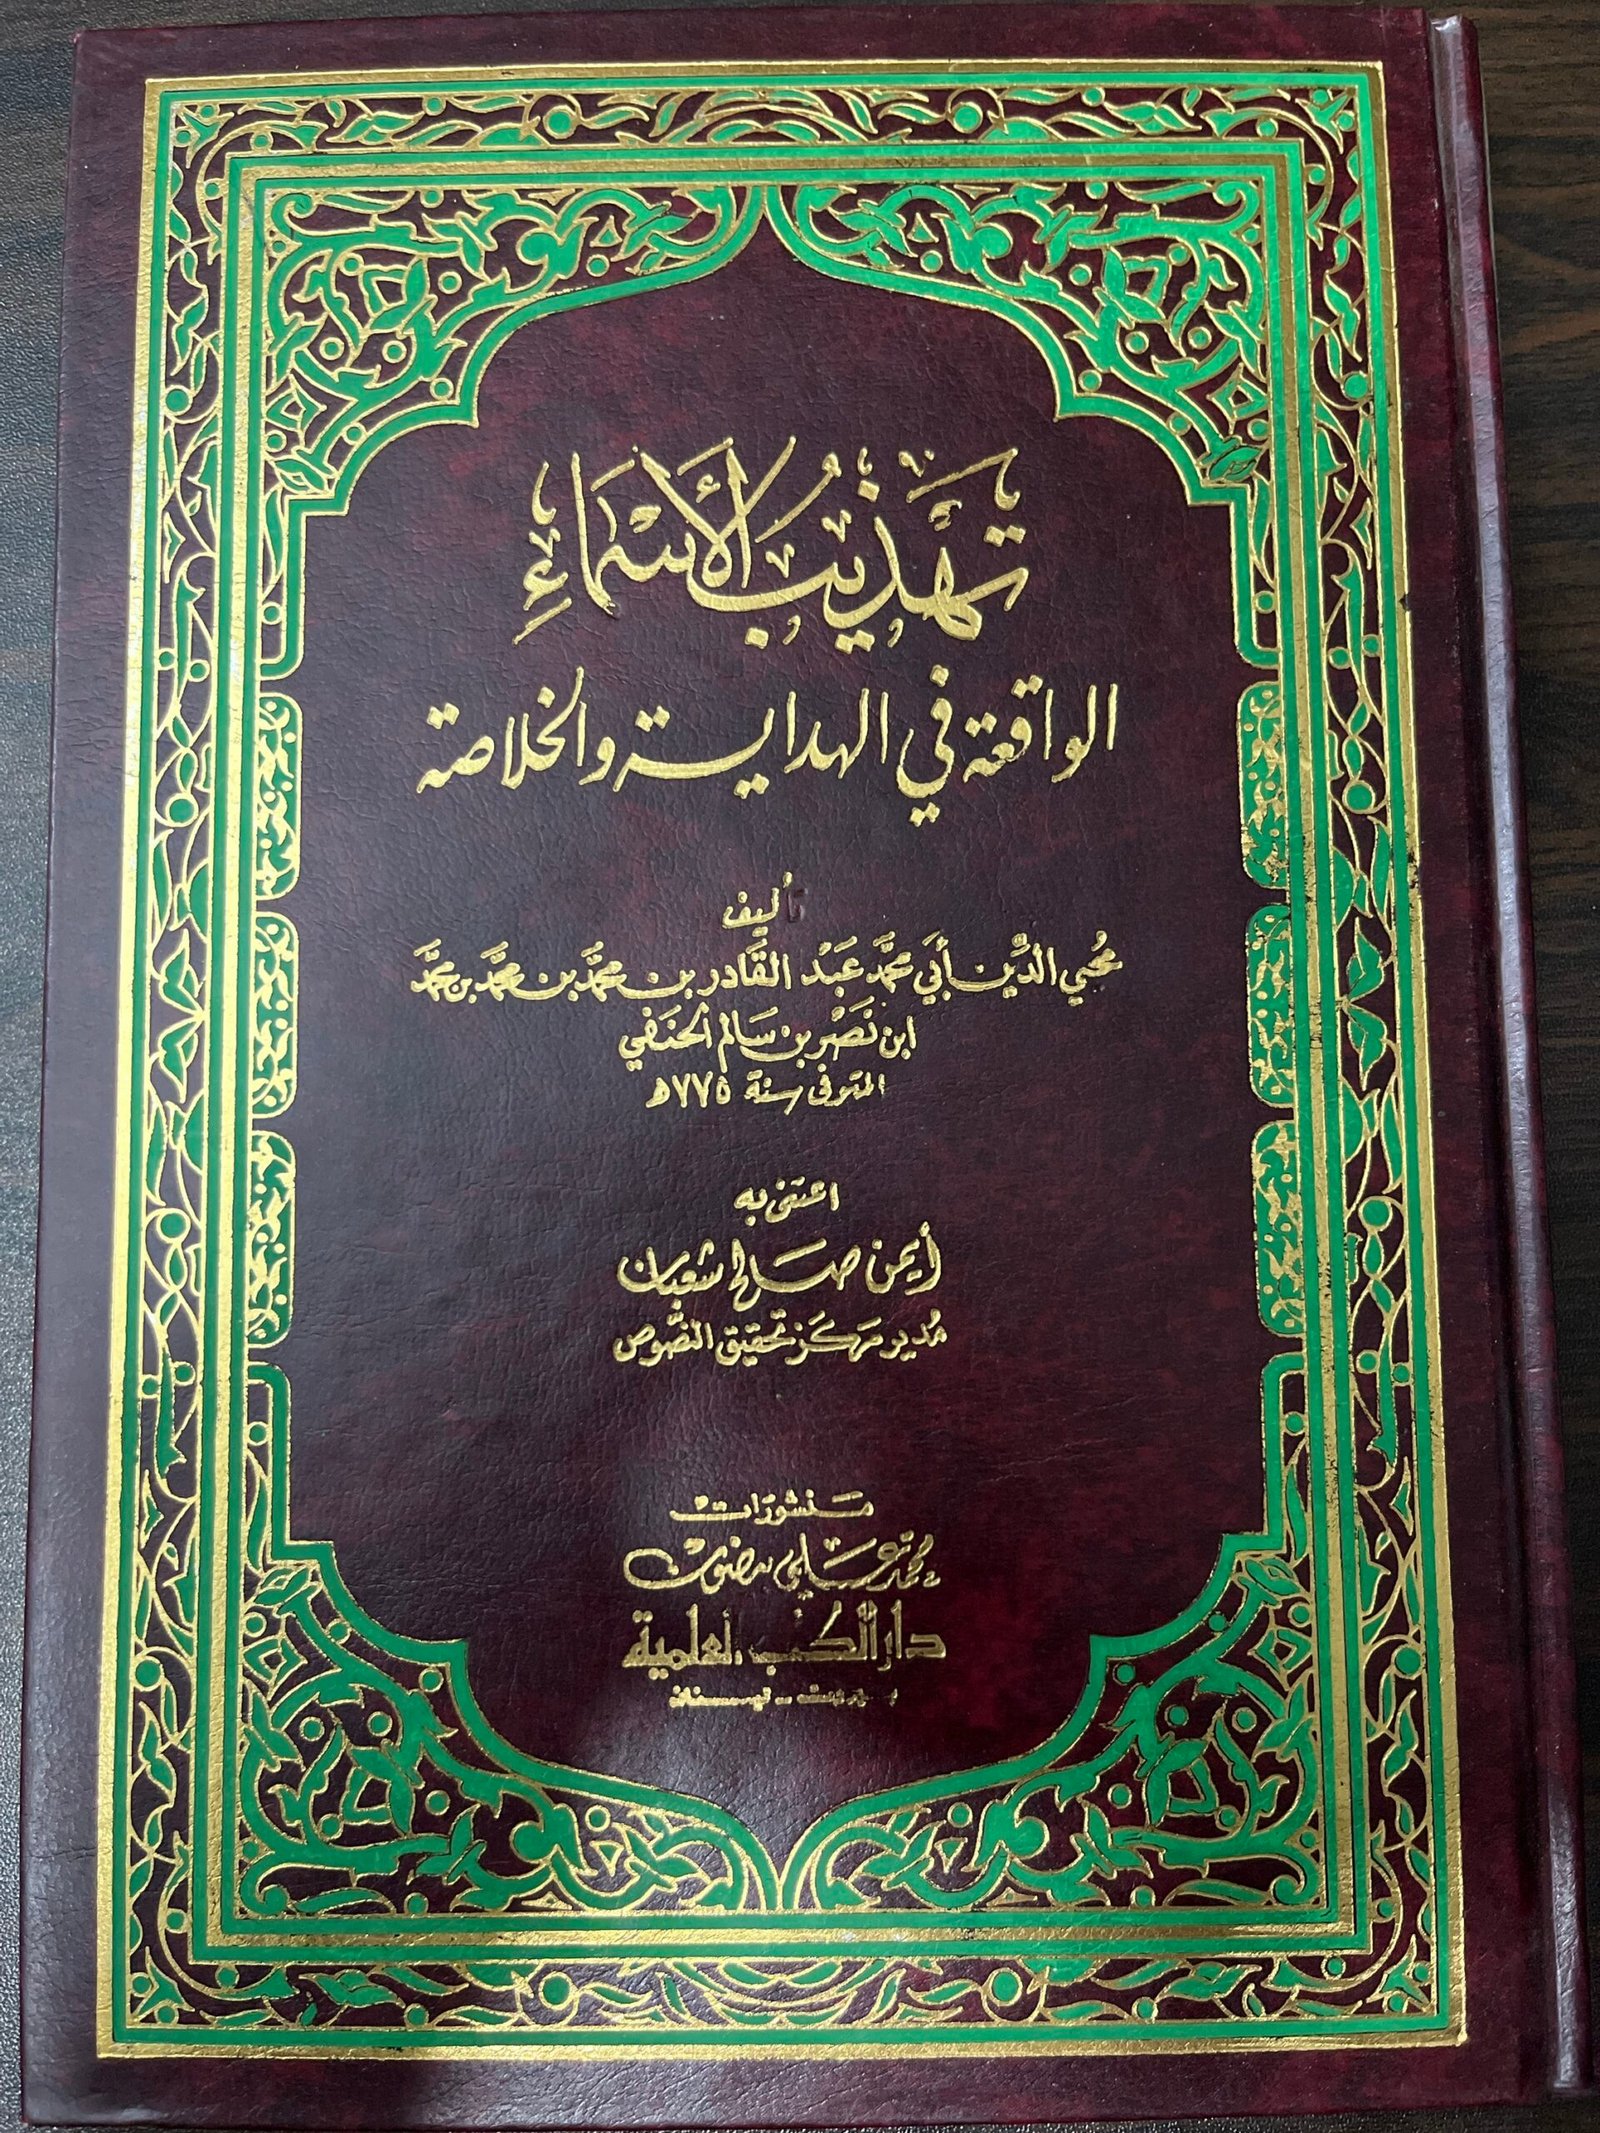 تهذيب الأسماء
الواقعة في الهداية والخلاصة
تأليف
محيي الدين أبي محمد عبد القادر بن محمد بن محمد بن محمد
ابن نصر بن سالم الحنفي
المتوفى سنة ٧٧٥هـ
اعتنى به
أيمن صالح شعبان
مدير مركز تحقيق النصوص
منشورات
محمد علي بيضون
دار الكتب العلمية
بيروت - لبنان